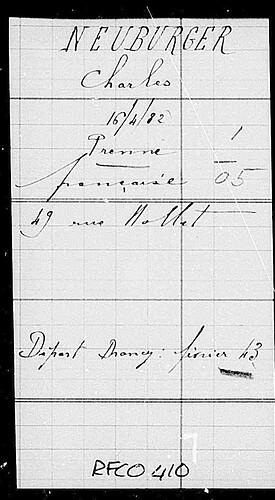 NEUBURGER
Charles
16/4/82
1
française 05
49 rue Nollet
Départ Drancy : février 43
RFCO 410